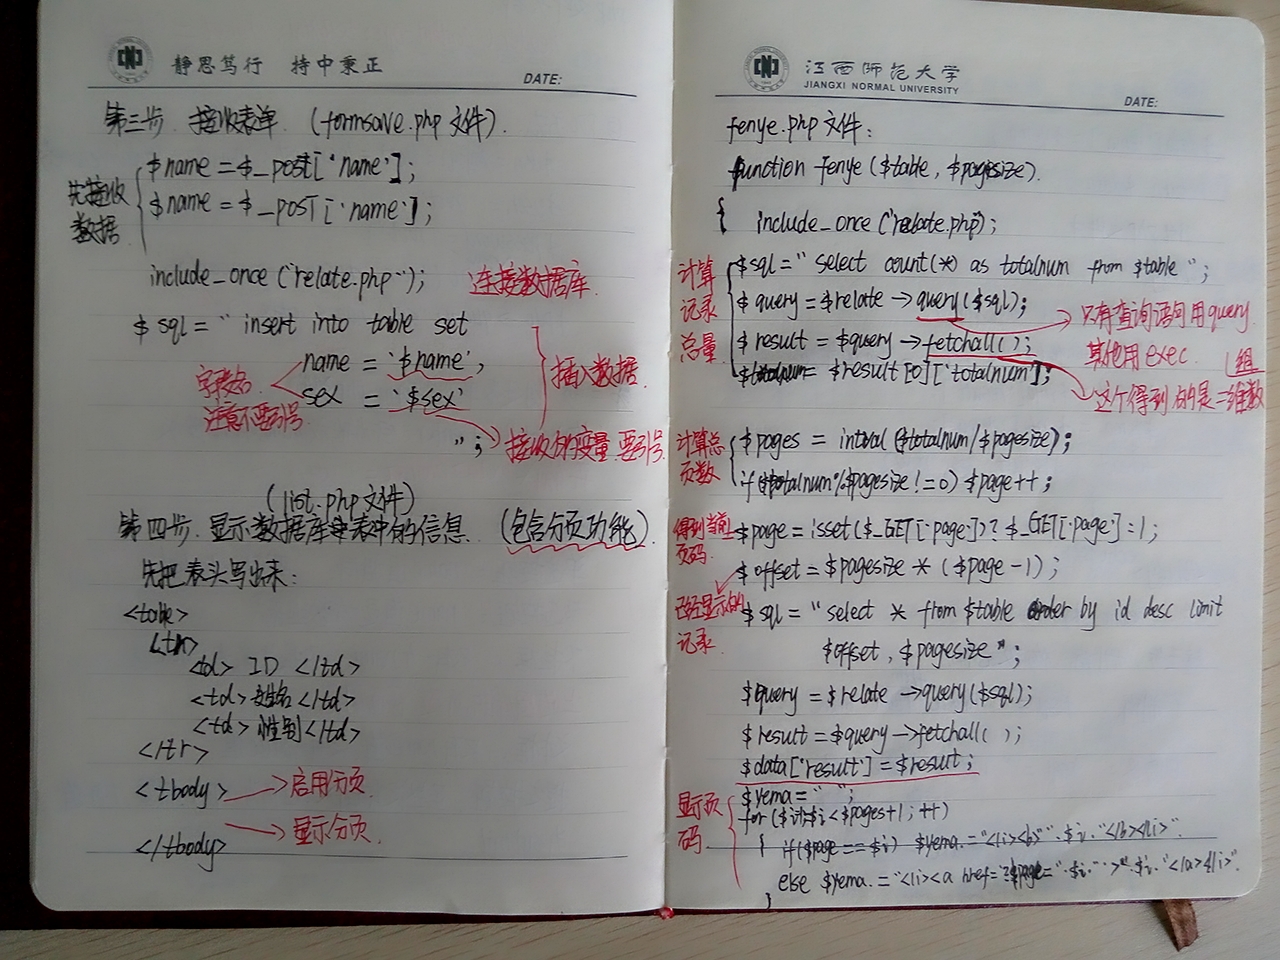 静思笃行 持中秉正
DATE:
第三步. 接收表单. (formsave.php 文件).
先接收
数据
$name = $_post['name'];
$name = $_POST['name'];
include_once ("relate.php"); 连接数据库.
$sql = " insert into table set
name = '$name',
sex = '$sex'
";
字段名
注意不要引号
插入数据.
接收的变量 要引号.
(list.php 文件)
第四步. 显示数据库表中的信息. (包含分页功能).
先把表头写出来:
<table>
<tr>
<td> ID </td>
<td> 姓名 </td>
<td> 性别 </td>
</tr>
<tbody> 启用分页.
显示分页.
</tbody>
江西师范大学
JIANGXI NORMAL UNIVERSITY
DATE:
fenye.php 文件:
function fenye ($table, $pagesize).
{ include_once ("relate.php);
计算
记录
总量.
$sql = " select count(*) as totalnum from $table ";
$query = $relate -> query($sql);
只有查询语句用query.
其他用exec.
$result = $query -> fetchall();
这个得到的是二维数
组
$totalnum = $result[0]['totalnum'];
计算总
页数
$pages = intval ($totalnum/$pagesize);
if ($totalnum%$pagesize != 0) $page++;
得到当前
页码.
$page = isset($_GET['page'])? $_GET['page'] : 1;
$offset = $pagesize * ($page-1);
已经显示的
记录.
$sql = " select * from $table order by id desc limit
$offset, $pagesize ";
$query = $relate -> query($sql);
$result = $query -> fetchall( );
$data['result'] = $result;
显示页
码.
$yema = " ";
for ($i=1;$i<$pages+1; ++)
{ if($page == $i) $yema. = "<li><b>" .$i. "</b></li>".
else $yema. = "<li><a href='?$page=" .$i. " '>" .$i. "</a></li>".
}